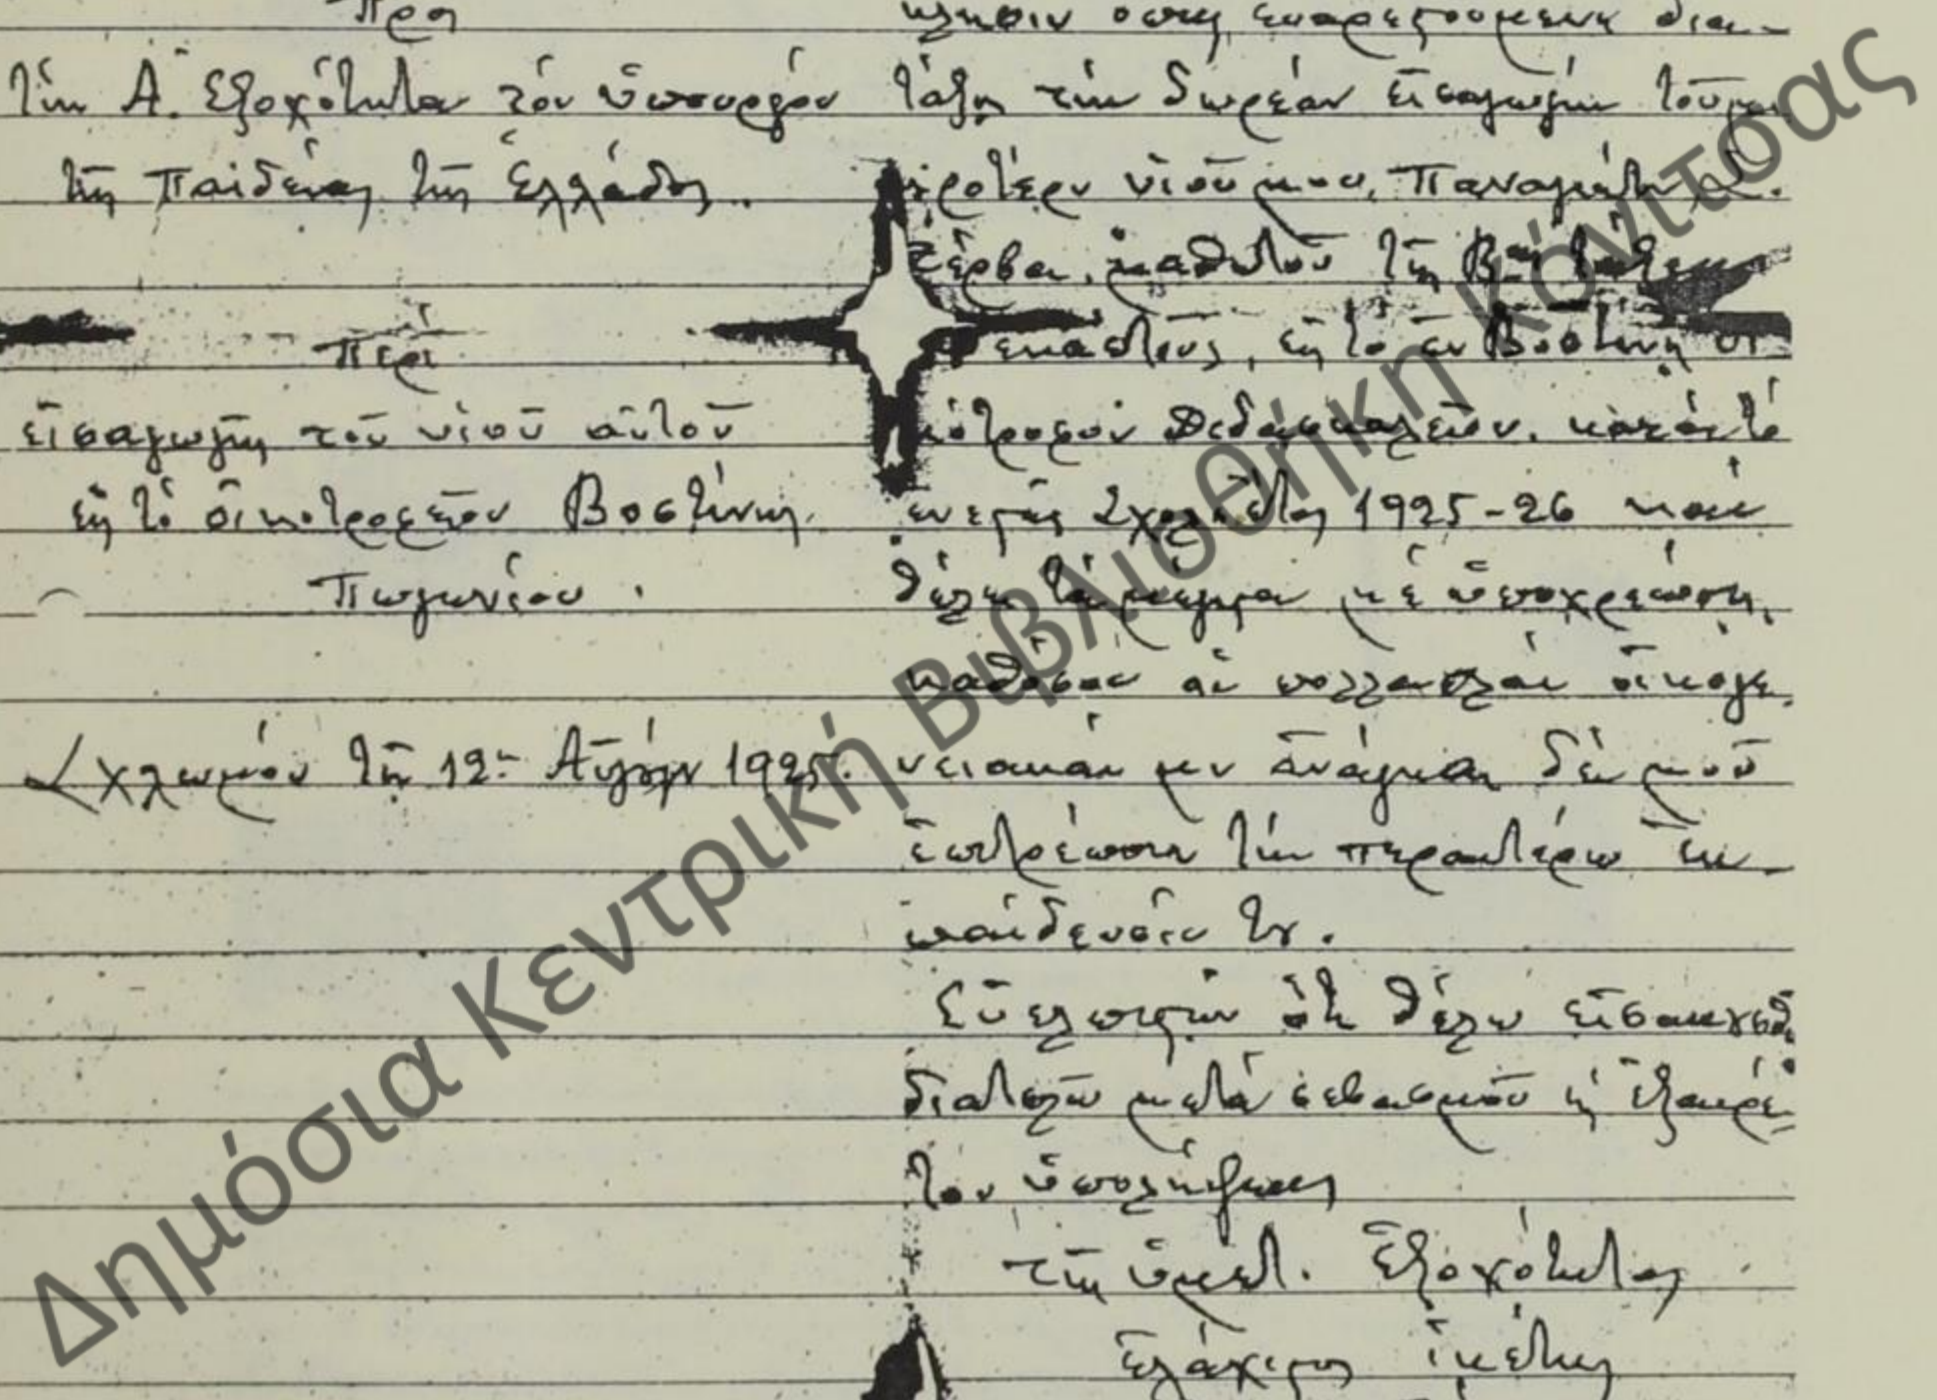 Πρὸς
τὴν Α. Ἐξοχότητα τὸν ὑπουργὸν
τῆς Παιδείας τῆς Ἑλλάδος.
Περὶ
εἰσαγωγῆς τοῦ υἱοῦ αὐτοῦ
εἰς τὸ οἰκοτροφεῖον Βοστίνης
Πωγωνίου.
Σχλωρι̯όν τῇ 12ῃ Αὐγούστου 1925.
κλησιν ὅπως εὐαρεστουμένη δια-
τάξῃ τὴν δωρεὰν εἰσαγωγὴν τοῦ μι-
κροτέρου υἱοῦ μου, Παναγιώτου Δ.
Ζέρβα, μαθητοῦ τῆς Βας τάξεως
εἰς τὸ ἐν Βοστίνῃ οἰ-
κότροφον Διδασκαλεῖον, κατὰ τὸ
ἐνεστὸς Σχολ. ἔτος 1925-26 καὶ
θέλει τὰ μέγιστα μὲ ὑποχρεώσῃ,
καθόσον αἱ πολλαπλαῖ οἰκογε-
νειακαί μου ἀνάγκαι δέν μοῦ
ἐπιτρέπουν τὴν περαιτέρω ἐκ-
παίδευσίν του.
Εὐελπιστῶν ὅτι θέλω εἰσακουσθῆ
διατελῶ μετὰ σεβασμοῦ κ̀ ἐξαιρέ-
του ὑπολήψεως
τῆς ὑμετ. Ἐξοχότητος
ἐλάχιστος ἱκέτης
Δημόσια Κεντρική Βιβλιοθήκη Κόνιτσας